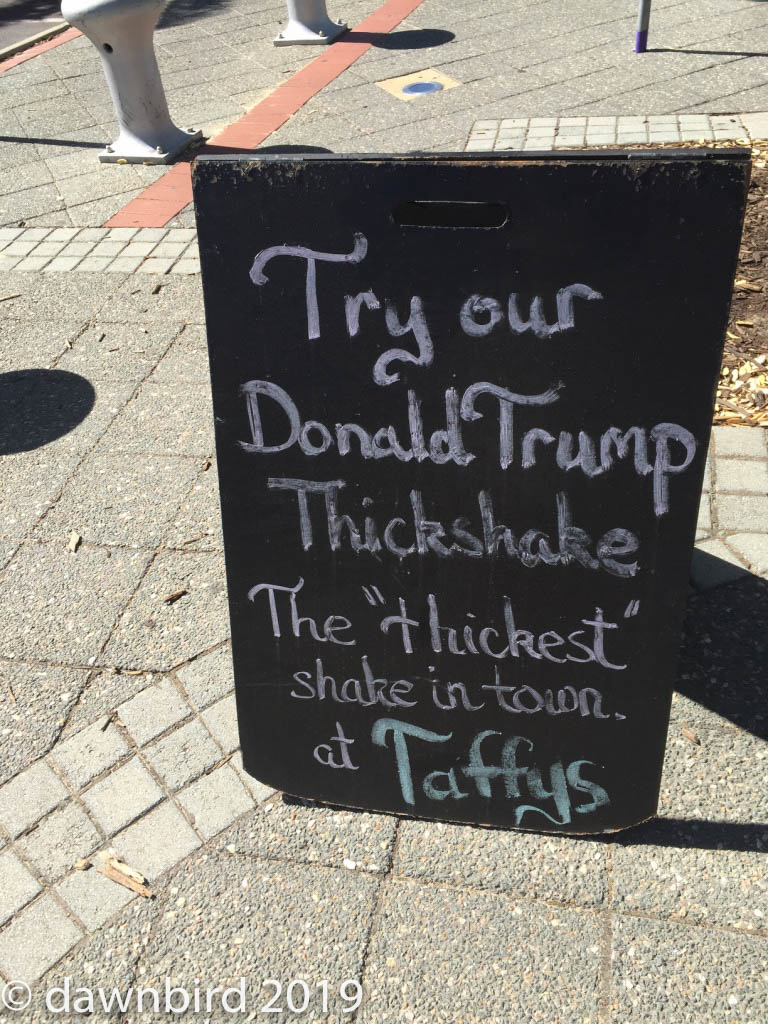 Try our
Donald Trump
Thickshake
The "thickest"
shake in town.
at Taffys
© dawnbird 2019